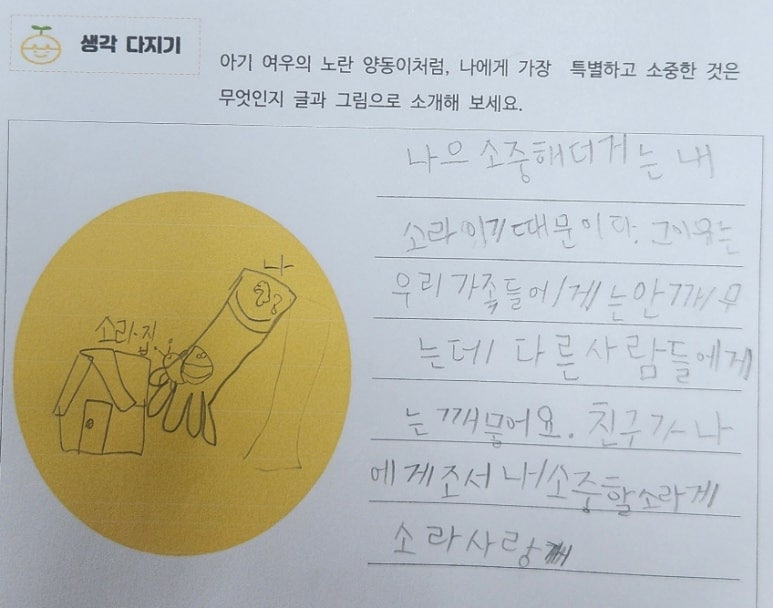 생각 다지기
아기 여우의 노란 양동이처럼, 나에게 가장 특별하고 소중한 것은
무엇인지 글과 그림으로 소개해 보세요.
나으 소중해더거는 내
소라이기때문이다. 그이유는
우리가족들에게는안깨무
는데 다른사람들에게
는깨물어요. 친구가 나
에게조서 내소중할소라게
소라사랑해
나
소라집